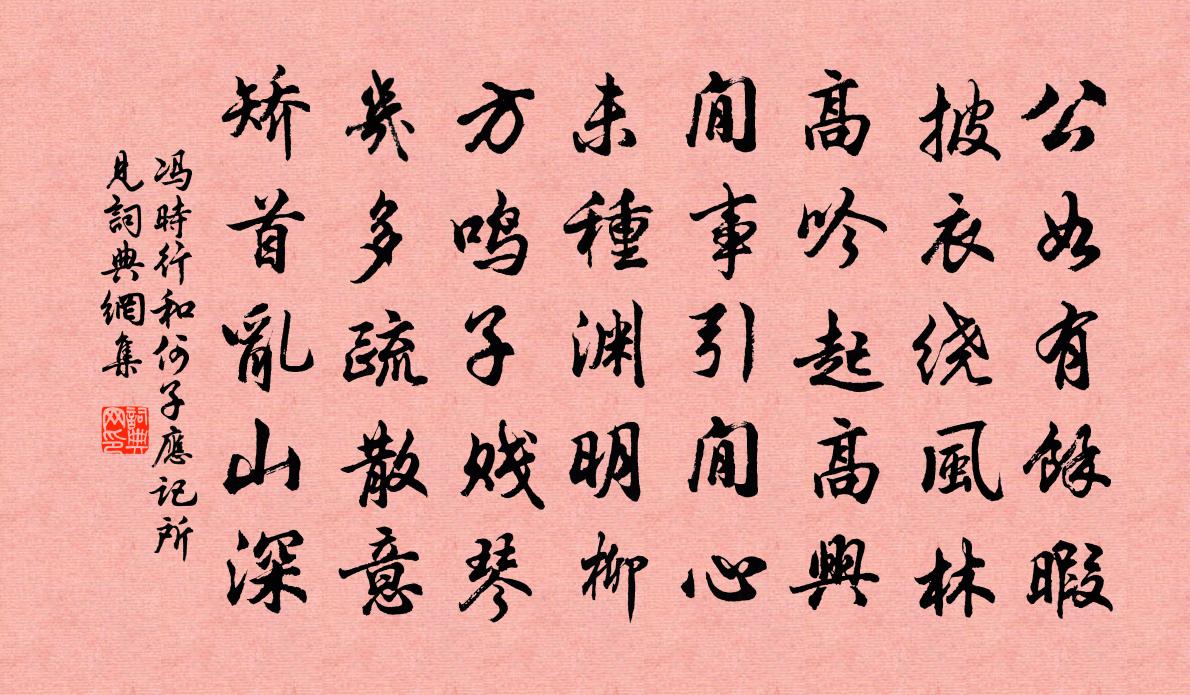 公如有餘暇
披衣绕風林
高吟起高興
閒事引閒心
未種渊明柳
方鸣子贱琴
幾多疏散意
矫首亂山深
冯時行和何子應记所
見詞典網集
詞典网印